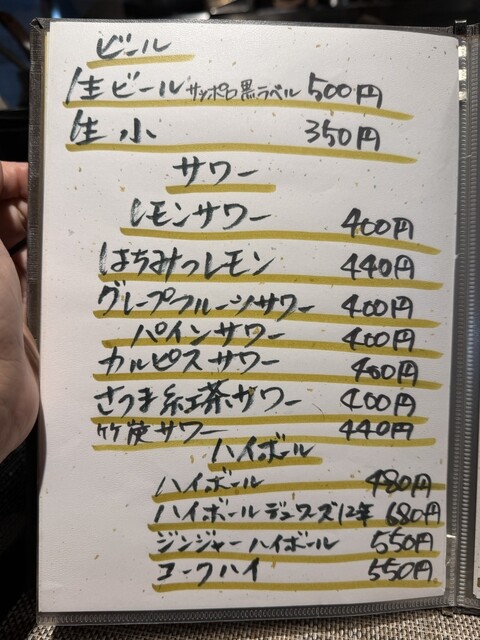 ビール
生ビール サッポロ黒ラベル 500円
生 小 350円
サワー
レモンサワー 400円
はちみつレモン 440円
グレープフルーツサワー 400円
パインサワー 400円
カルピスサワー 400円
さつま紅茶サワー 400円
竹炭サワー 440円
ハイボール
ハイボール 480円
ハイボール デュワーズ12年 680円
ジンジャーハイボール 550円
コークハイ 550円